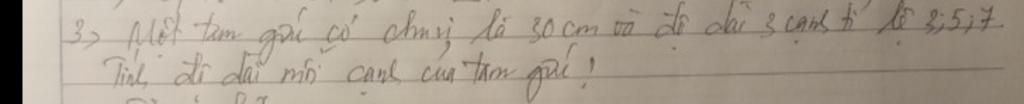 3, Một tam giác có chu vi là 30 cm và độ dài 3 cạnh tỉ lệ 3;5;7
Tính độ dài mỗi cạnh của tam giác!